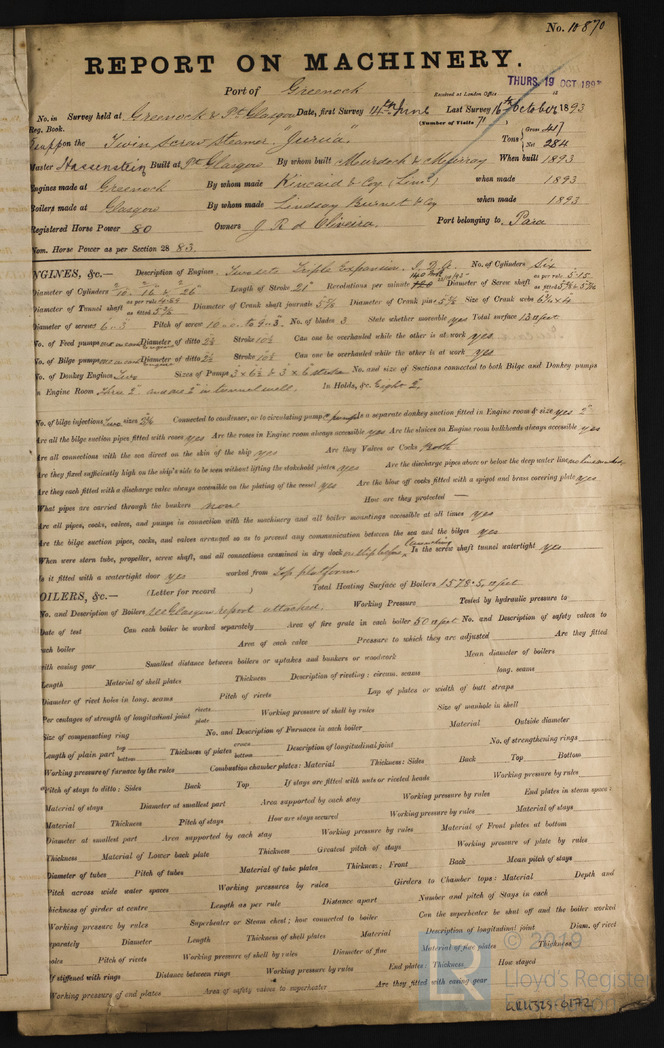 No. 10870
REPORT ON MACHINERY.
Port of Greenock
Received at London Office THURS. 19 OCT 189
No. in Survey held at Greenock & Pt Glasgow Date, first Survey 14th June Last Survey 16th October 1893
Reg. Book. (Number of Visits 71)
on the Twin Screw Steamer "Jurua" Tons Gross 417 Net 284
Master Hassenstein Built at Pt Glasgow By whom built Murdoch & Murray When built 1893
Engines made at Greenock By whom made Kincaid & Coy (Limd) when made 1893
Boilers made at Glasgow By whom made Lindsay Burnet & Coy when made 1893
Registered Horse Power 80 Owners J R d Oliveira. Port belonging to Para
Nom. Horse Power as per Section 28 83.
NGINES, &c.— Description of Engines Two sets Triple Expansion No. of Cylinders Six
Diameter of Cylinders 10 16 & 26" Length of Stroke 21" Revolutions per minute Diameter of Screw shaft as per rule 5.15
Diameter of Tunnel shaft as per rule as fitted Diameter of Crank shaft journals Diameter of Crank pins Size of Crank webs
Diameter of screws 6.3 Pitch of screw No. of blades 3 State whether moveable yes Total surface 13 sq feet
No. of Feed pumps Diameter of ditto Stroke Can one be overhauled while the other is at work yes
No. of Bilge pumps Diameter of ditto Stroke Can one be overhauled while the other is at work yes
No. of Donkey Engines Two Sizes of Pumps No. and size of Suctions connected to both Bilge and Donkey pumps
n Engine Room Three 2" and one 2" in tunnel well. In Holds, &c. Eight 2"
No. of bilge injections sizes Connected to condenser, or to circulating pump Is a separate donkey suction fitted in Engine room & size yes 2"
Are all the bilge suction pipes fitted with roses yes Are the roses in Engine room always accessible yes Are the sluices on Engine room bulkheads always accessible yes
Are all connections with the sea direct on the skin of the ship yes Are they Valves or Cocks Both
Are they fixed sufficiently high on the ship's side to be seen without lifting the stokehold plates yes Are the discharge pipes above or below the deep water line
Are they each fitted with a discharge valve always accessible on the plating of the vessel yes Are the blow off cocks fitted with a spigot and brass covering plate yes
What pipes are carried through the bunkers none How are they protected —
Are all pipes, cocks, valves, and pumps in connection with the machinery and all boiler mountings accessible at all times yes
Are the bilge suction pipes, cocks, and valves arranged so as to prevent any communication between the sea and the bilges yes
When were stern tube, propeller, screw shaft, and all connections examined in dry dock on slip before launching Is the screw shaft tunnel watertight yes
Is it fitted with a watertight door yes worked from Top platform
OILERS, &c.— (Letter for record ) Total Heating Surface of Boilers 1578.5 sq feet
No. and Description of Boilers see Glasgow report attached. Working Pressure Tested by hydraulic pressure to
Date of test Can each boiler be worked separately Area of fire grate in each boiler 50 sq feet No. and Description of safety valves to
each boiler Area of each valve Pressure to which they are adjusted Are they fitted
with easing gear Smallest distance between boilers or uptakes and bunkers or woodwork Mean diameter of boilers
Length Material of shell plates Thickness Description of riveting: circum. seams long. seams
Diameter of rivet holes in long. seams Pitch of rivets Lap of plates or width of butt straps
Per centages of strength of longitudinal joint rivets plate Working pressure of shell by rules Size of manhole in shell
Size of compensating ring No. and Description of Furnaces in each boiler Material Outside diameter
Length of plain part top bottom Thickness of plates crown bottom Description of longitudinal joint No. of strengthening rings
Working pressure of furnace by the rules Combustion chamber plates: Material Thickness: Sides Back Top Bottom
Pitch of stays to ditto: Sides Back Top If stays are fitted with nuts or riveted heads Working pressure by rules
Material of stays Diameter at smallest part Area supported by each stay Working pressure by rules End plates in steam space:
Material Thickness Pitch of stays How are stays secured Working pressure by rules Material of stays
Diameter at smallest part Area supported by each stay Working pressure by rules Material of Front plates at bottom
Thickness Material of Lower back plate Thickness Greatest pitch of stays Working pressure of plate by rules
Diameter of tubes Pitch of tubes Material of tube plates Thickness: Front Back Mean pitch of stays
Pitch across wide water spaces Working pressures by rules Girders to Chamber tops: Material Depth and
hickness of girder at centre Length as per rule Distance apart Number and pitch of Stays in each
Working pressure by rules Superheater or Steam chest; how connected to boiler Can the superheater be shut off and the boiler worked
eparately Diameter Length Thickness of shell plates Material Description of longitudinal joint Diam. of rivet
oles Pitch of rivets Working pressure of shell by rules Diameter of flue Material of flue plates Thickness
If stiffened with rings Distance between rings Working pressure by rules End plates: Thickness How stayed
Working pressure of end plates Area of safety valves to superheater Are they fitted with easing gear
© 2019
Lloyd's Register
LR